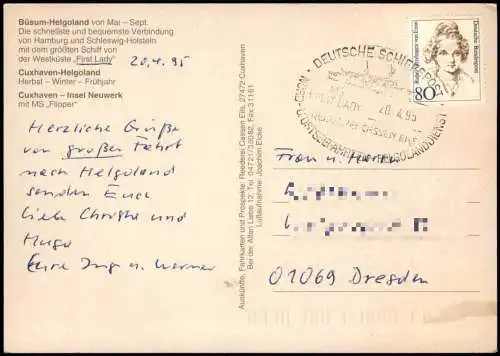 Büsum-Helgoland von Mai – Sept.
Die schnellste und bequemste Verbindung
von Hamburg und Schleswig-Holstein
mit dem größten Schiff von
der Westküste „First Lady“
20.4.95
Cuxhaven-Helgoland
Herbst – Winter – Frühjahr
Cuxhaven – Insel Neuwerk
mit MS „Flipper“
Herzliche Grüße
von großer Fahrt
nach Helgoland
senden Euch
liebe Christa und
Hugo
Eure Inge u. Werner
Auskünfte, Fahrkarten und Prospekte: Reederei Cassen Eils, 27472 Cuxhaven
Bei der Alten Liebe 12, Tel. 04721/35082, Fax 31161
Luftaufnahme: Joachim Eicke
DEUTSCHE SCHIFFSPOST
MS
FIRST LADY
20.4.95
REEDEREI CASSEN EILS
Deutsche Bundespost
80
Frau u. Herrn
01069 Dresden